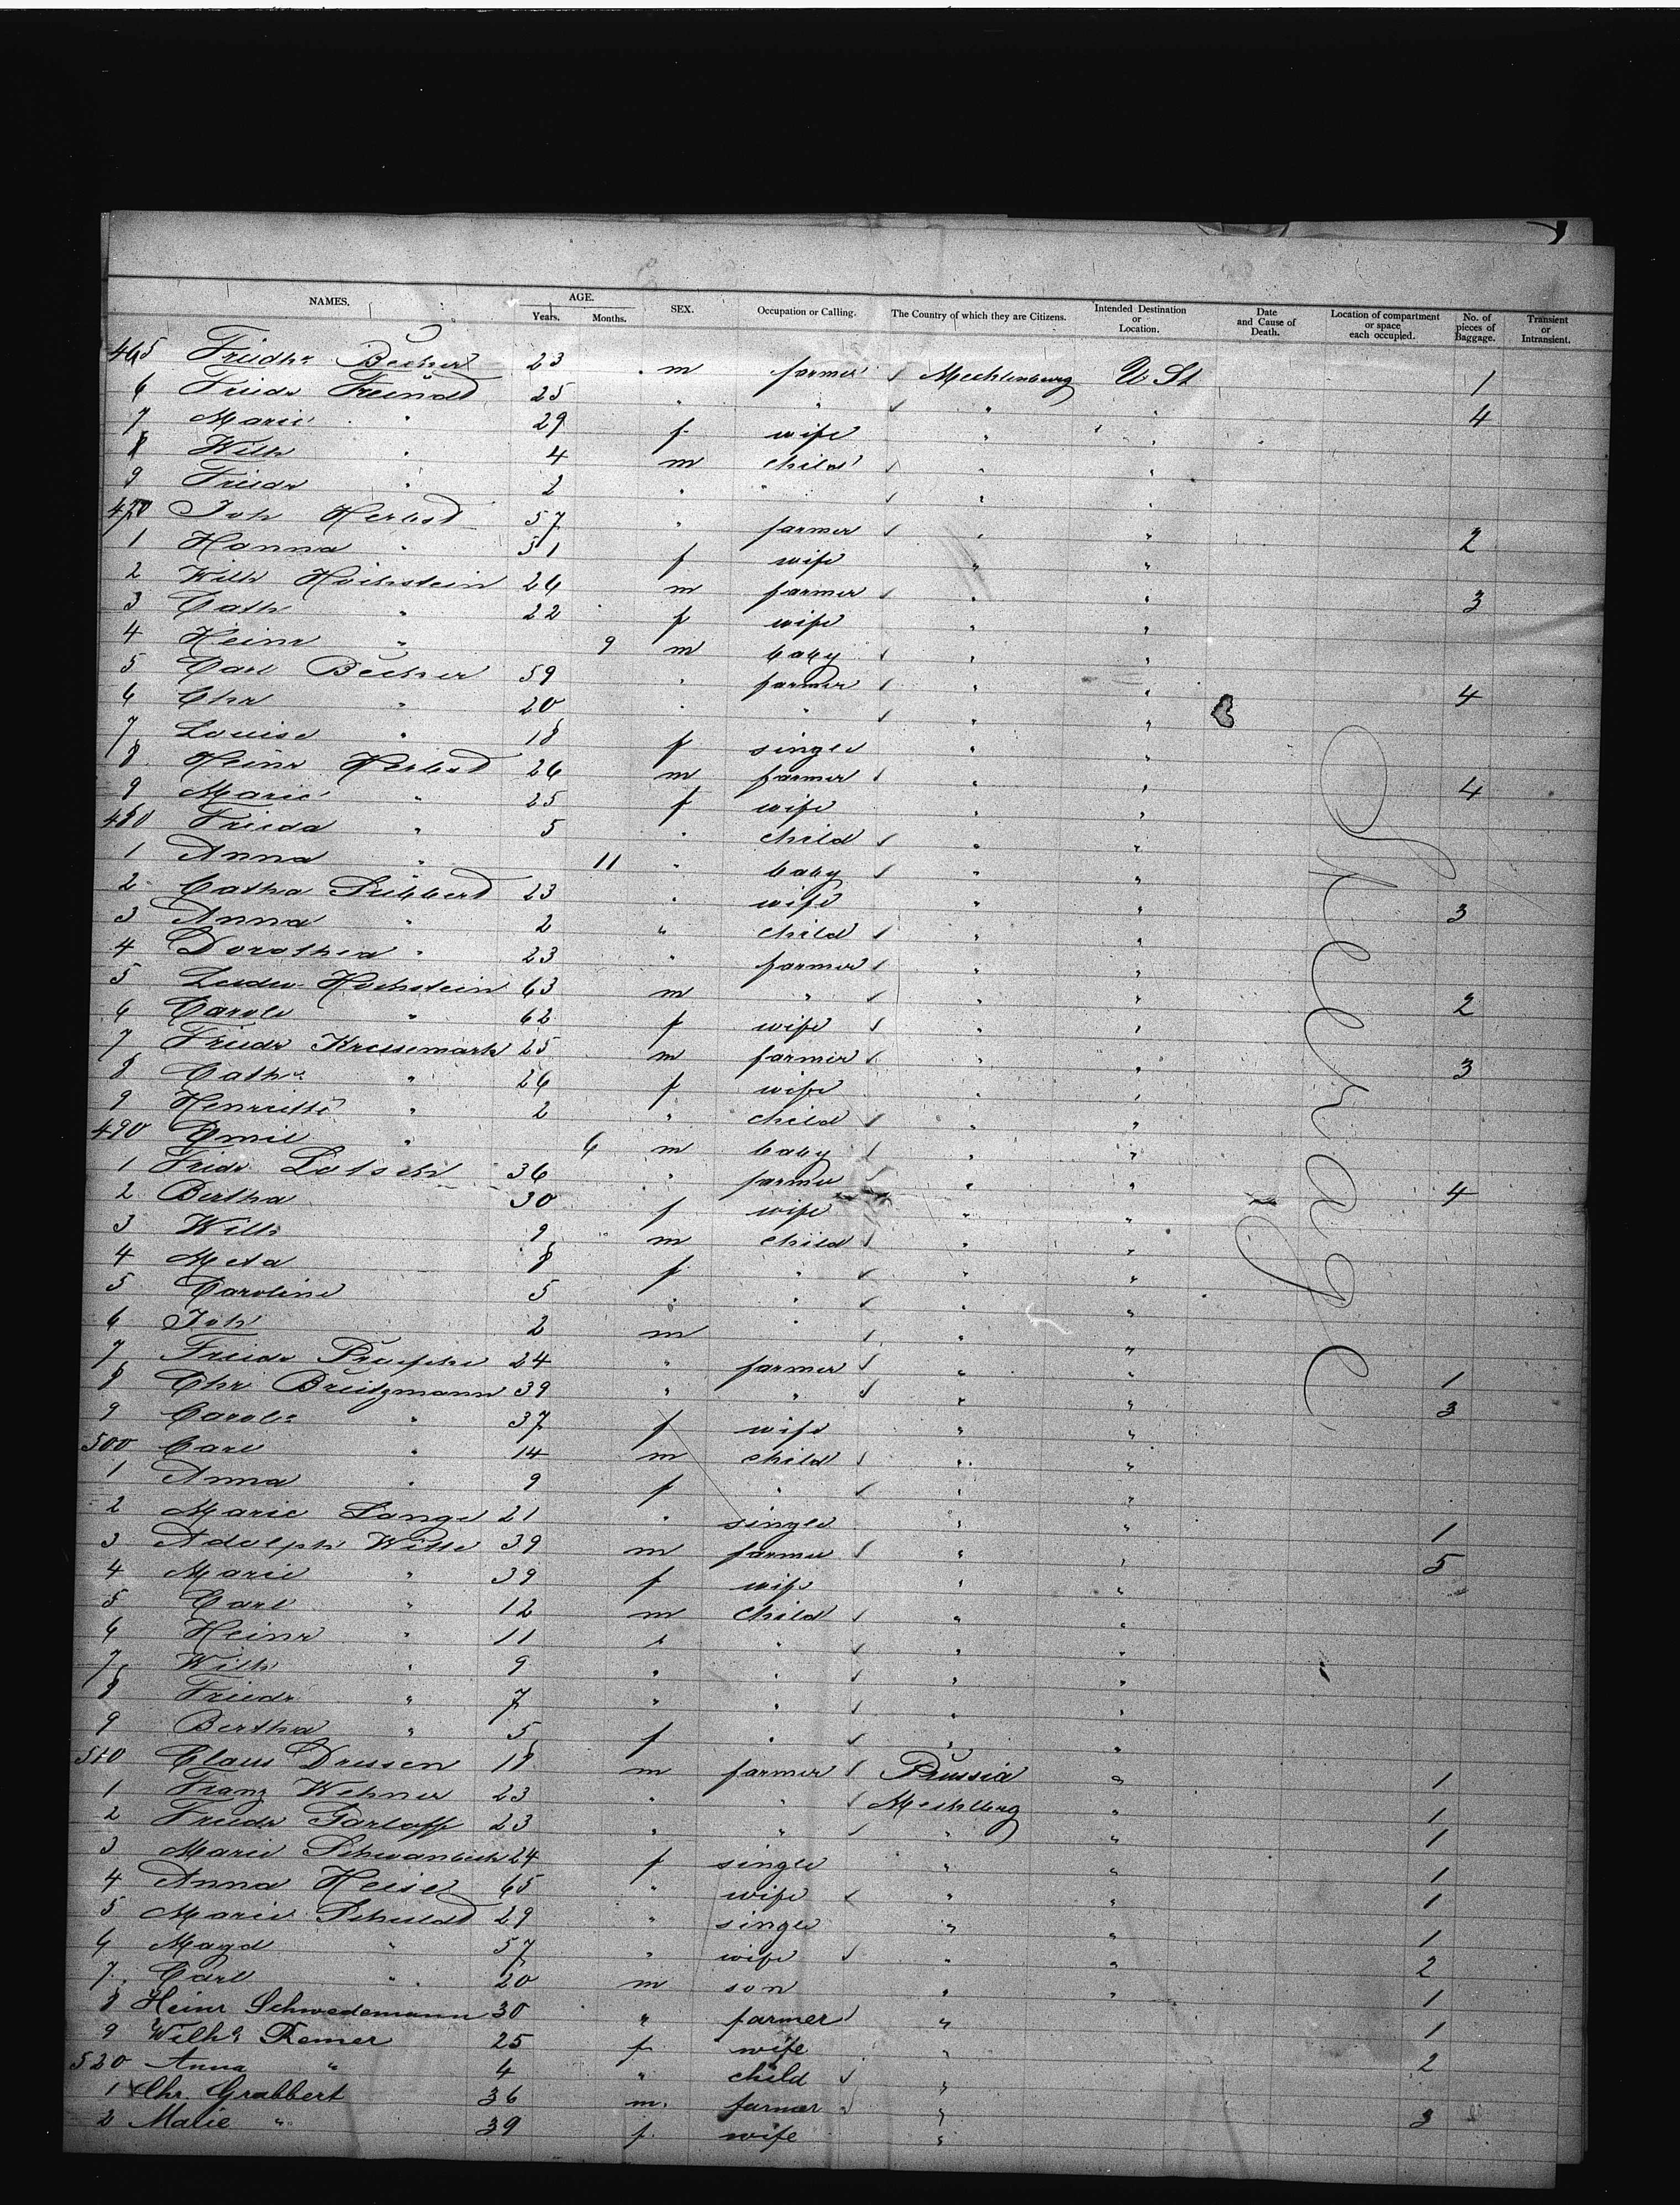 NAMES. AGE. Years. Months. SEX. Occupation or Calling. The Country of which they are Citizens. Intended Destination or Location. Date and Cause of Death. Location of compartment or space each occupied. No. of pieces of Baggage. Transient or Intransient.
465 Friedhr Becker 23 m farmer Mecklenburg U St 1
6 Friedr Freund 25 " " " " 4
7 Marie " 29 f wife " "
8 Wilh " 4 m child " "
9 Friedr " 2 " " " "
470 Joh Herbst 57 " farmer " " 2
1 Hanna " 51 f wife " "
2 Wilh Hochstein 26 m farmer " " 3
3 Cath " 22 f wife " "
4 Heinr " 9 m baby " "
5 Carl Becker 59 " farmer " " 4
6 Chr " 20 " " " "
7 Louise " 18 f single " "
8 Heinr Herbst 26 m farmer " " 4
9 Marie " 25 f wife " "
480 Frieda " 5 " child " "
1 Anna " 11 " baby " "
2 Catha Lübbert 23 " wife " " 3
3 Anna " 2 " child " "
4 Dorothea " 23 " farmer " "
5 Hochstein 63 m " " " 2
6 Carole " 62 f wife " "
7 Friedr Kresemark 25 m farmer " " 3
8 Cathe " 26 f wife " "
9 Henriette " 2 " child " "
490 Emil " 6 m baby " "
1 Friedr Lutsch 36 " farmer " " 4
2 Bertha 30 f wife " "
3 Wilh 9 m child " "
4 Meta 8 f " " "
5 Caroline 5 " " " "
6 Joh 2 m " " "
7 Friedr 24 " farmer " " 1
8 Chr Breitzmann 39 " " " " 3
9 Carole " 37 f wife " "
500 Carl " 14 m child " "
1 Anna " 9 f " " "
2 Marie Lange 21 " single " " 1
3 Adolph Witte 39 m farmer " " 5
4 Marie " 39 f wife " "
5 Carl " 12 m child " "
6 Heinr " 11 " " " "
7 Wilh " 9 " " " "
8 Friedr " 7 " " " "
9 Bertha " 5 f " " "
510 Claus Dressen 18 m farmer Prussia " 1
1 Franz Wehner 23 " " Mecklbrg " 1
2 Friedr Parloff 23 " " " " 1
3 Marie Schwanbeck 24 f single " " 1
4 Anna Heise 65 " wife " " 1
5 Marie Schuldt 29 " single " " 1
6 Magd " 57 " wife " " 2
7 Carl " 20 m son " " 1
8 Heinr Schwedemann 30 " farmer " 1
9 Wilhe Remer 25 f wife " 2
520 Anna " 4 " child "
1 Chr. Grabbert 36 m. farmer " 3
2 Marie " 39 f. wife "
Steerage